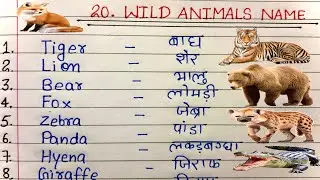 20. WILD ANIMALS NAME
1. Tiger – बाघ
2. Lion – शेर
3. Bear – भालु
4. Fox – लोमड़ी
5. Zebra – जेब्रा
6. Panda – पांडा
7. Hyena – लकड़बग्घा
8. Giraffe – जिराफ